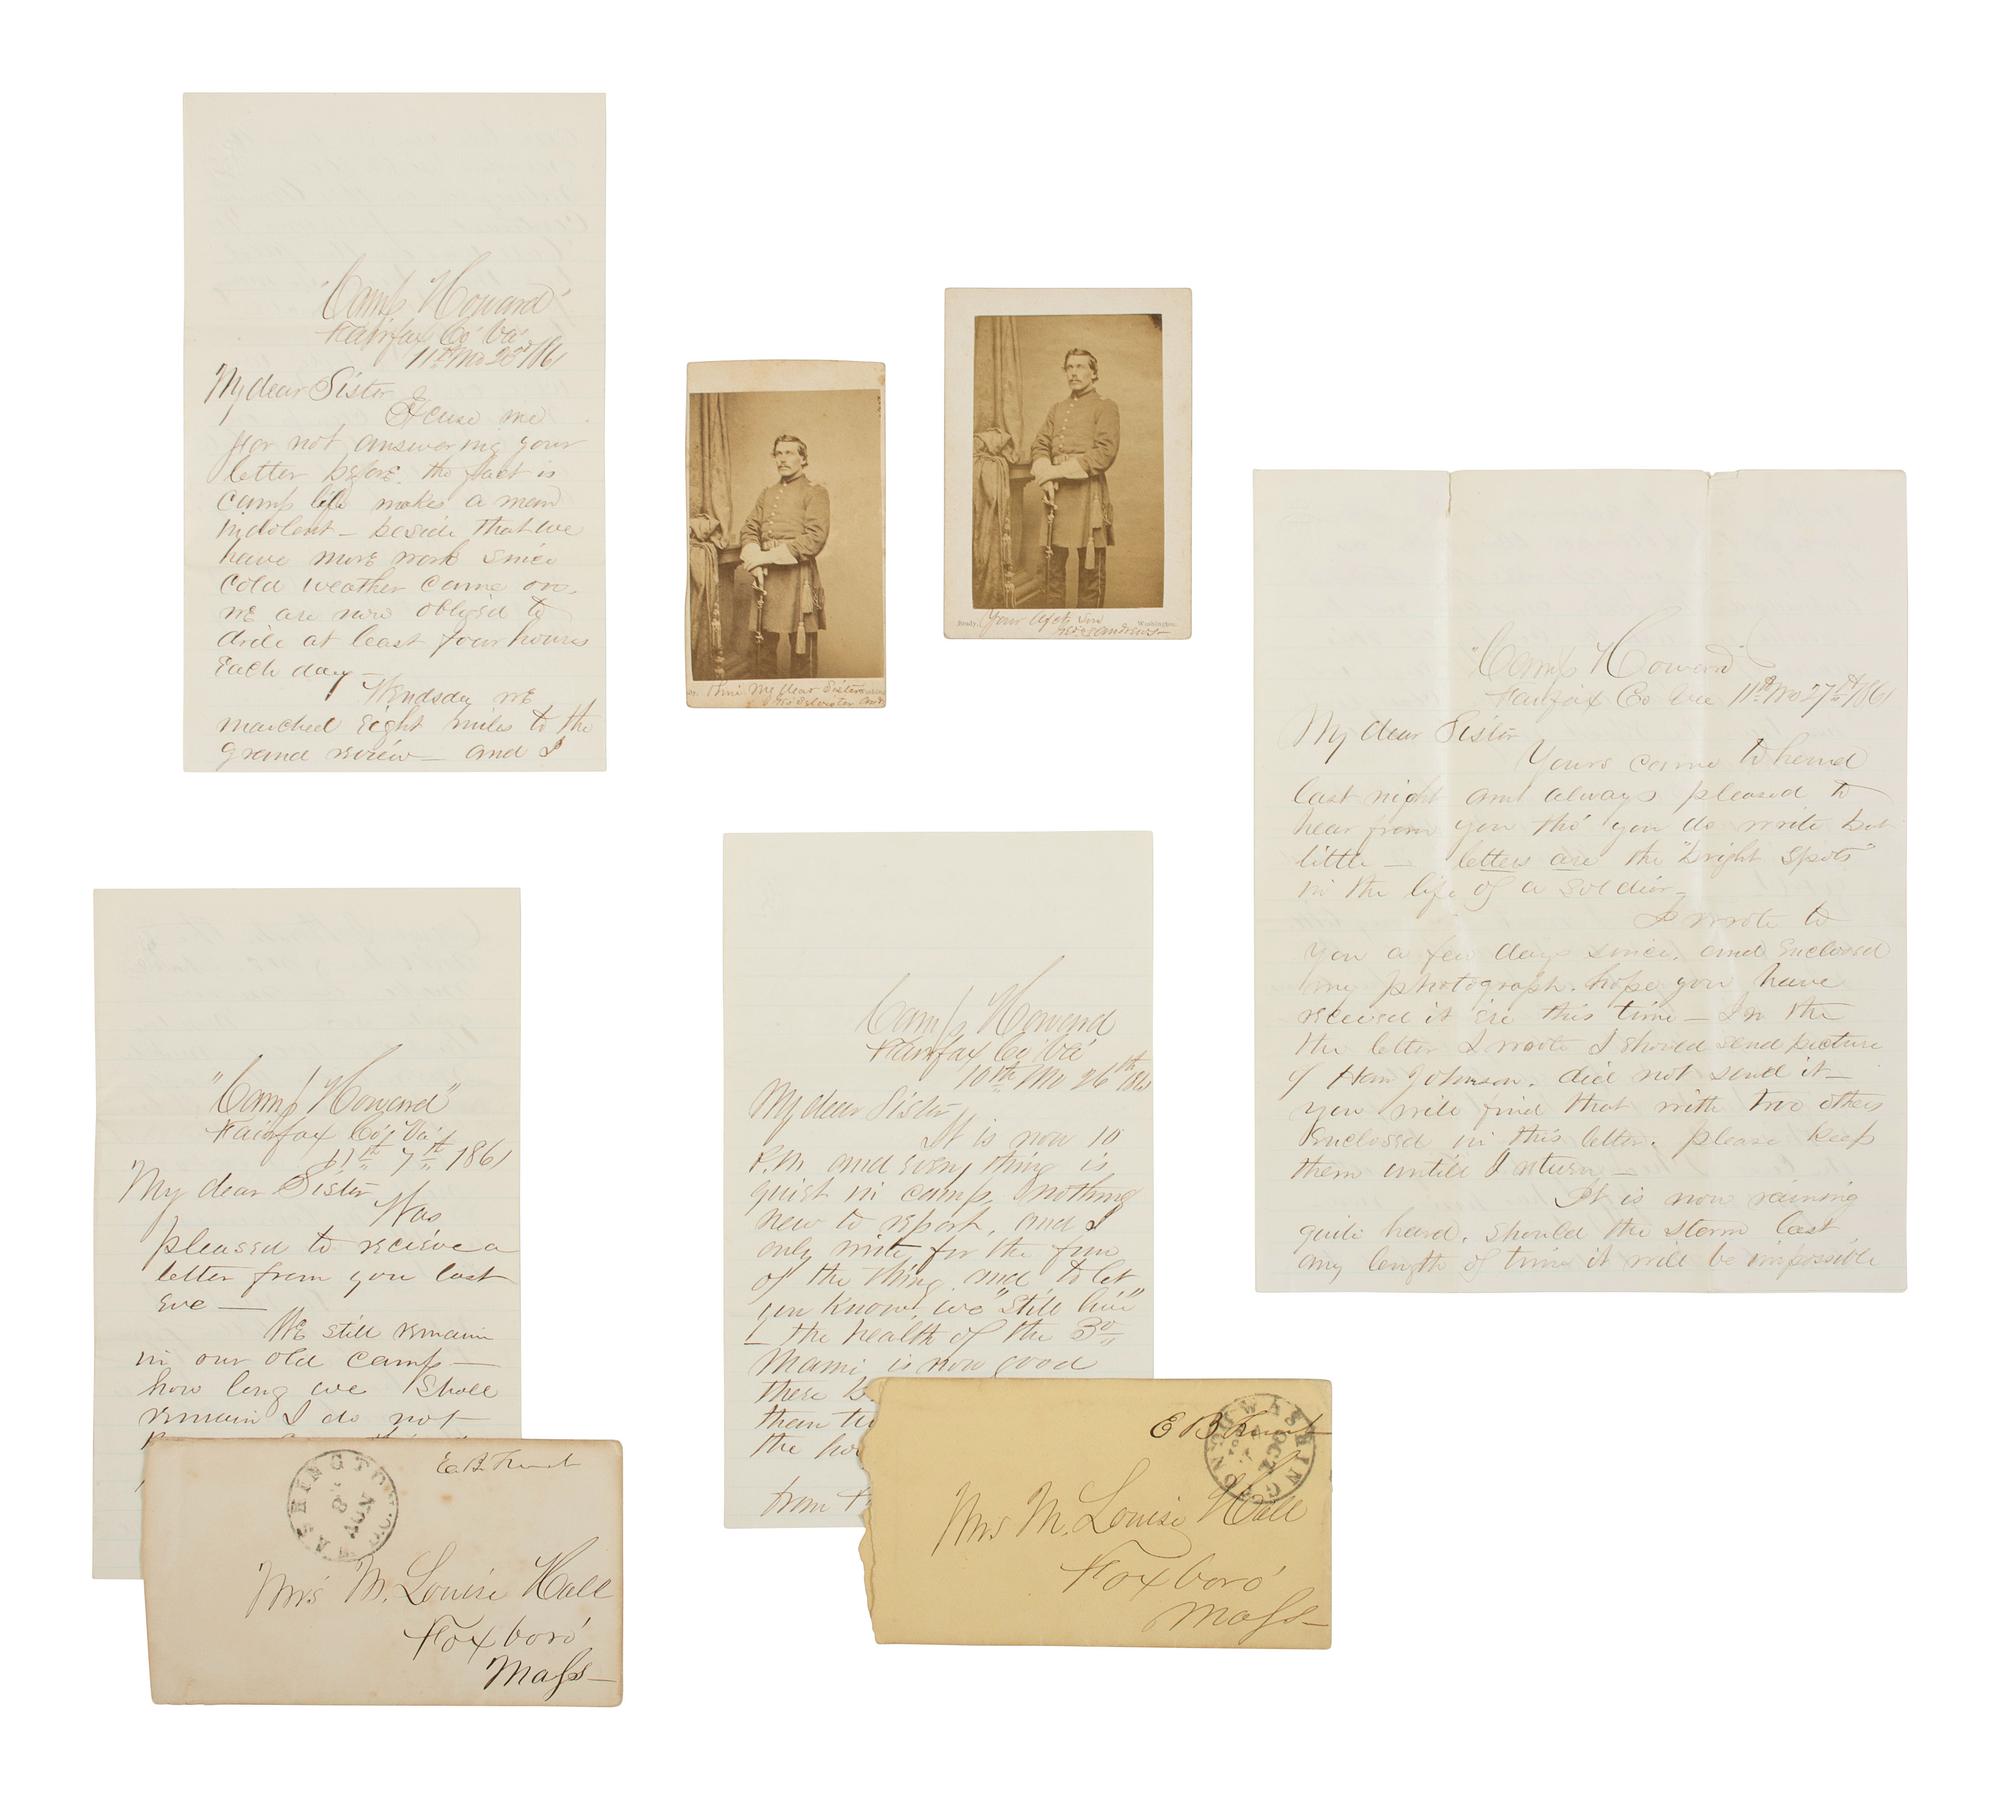 "Camp Howard"
Fairfax Co' Va'
11th Mo 23d /61
My dear Sister
Excuse me
for not answering your
letter before. the fact is
camp life makes a man
indolent — beside that we
have more work since
cold weather came on.
we are now obliged to
drile at least four hours
Each day —
Wendsday we
marched Eight miles to the
grand review — and I
My dear Sister
Brady.
Your Afct Son
Washington.
Geo S Andrews
"Camp Howard"
Fairfax Co Va 11th Mo 27th 1861
My dear Sister
Yours came to hand
last night am always pleased to
hear from you tho' you do write but
little — letters are the "bright spots"
in the life of a soldier —
I wrote to
you a few days since. and Enclosed
my photograph. hope you have
received it ere this time — In the
the letter I wrote I should send picture
of Han Johnson. did not send it —
you will find that with two others
Enclosed in this letter. please keep
them untill I return —
It is now raining
quite hard. should the storm last
any length of time it will be impossible
"Camp Howard"
Fairfax Co', Va'
11th 7th 1861
My dear Sister
Was
pleased to recieve a
letter from you last
eve —
We still remain
in our old camp —
how long we shall
remain I do not
WASHINGTON D.C.
NOV 8
E. B. French
Mrs M. Louise Hall
Foxboro'
Mass —
Camp Howard
Fairfax Co' Va'
10th Mo 26th 1861
My dear Sister
It is now 10
P.M. and every thing is
quiet in camp, nothing
new to report, and I
only write for the fun
of the thing, and to let
you know, we "still live"
— the health of the 3d
Maine is now good
there
than
the
from
E B French
WASHINGTON
OCT
Mrs M. Louise Hall
Foxboro'
Mass —